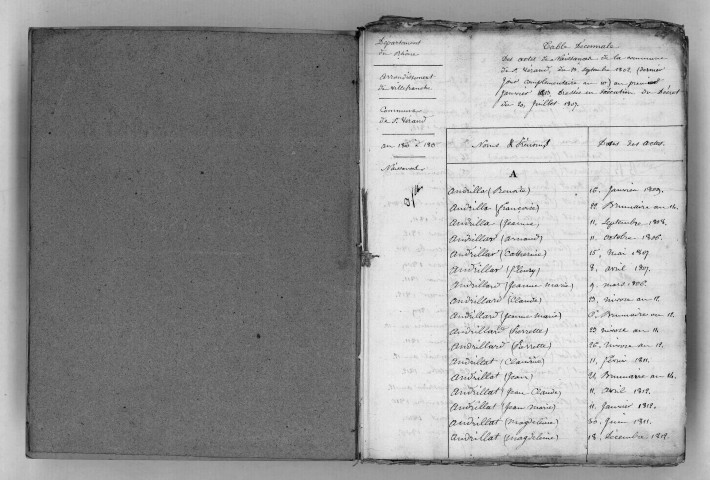 Département
du Rhône
Arrondissement
de Villefranche
Commune
de St. Vérand
an
Naissances
Table Décennale
Des actes de Naissances de la commune
de St. Vérand, du 22 septembre 1802 (dernier
jour complémentaire an 10) au premier
janvier 1813, dressée en exécution du Décret
du 20 juillet 1807.
Noms & Prénoms
Dates des actes.
A
Andrilla (Benoite) 16. janvier 1809.
Andrilla (françoise) 22 Brumaire an 14.
Andrilla (Jeanne) 11. Septembre 1808.
Andrillar (arnaud) 11. octobre 1806.
Andrillar (Catherine) 15. mai 1807.
Andrillar (fleury) 8. avril 1807.
Andrillard (Jeanne marie) 9. mars 1806.
Andrillard (Claude) 13. nivose an 12.
Andrillard (Jeanne marie) Brumaire an 12.
Andrillard (Pierrette) 23 nivose an 11.
Andrillard (Pierrette) 26. nivose an 11.
Andrillat (Claudine) 11. février 1811.
Andrillat (Jean) 21 Brumaire an 14.
Andrillat (Jean Claude) 11. avril 1812.
Andrillat (Jean marie) 11. Janvier 1812.
Andrillat (magdeleine) 30. Juin 1811.
Andrillat (magdeleine) 18. Décembre 1812.